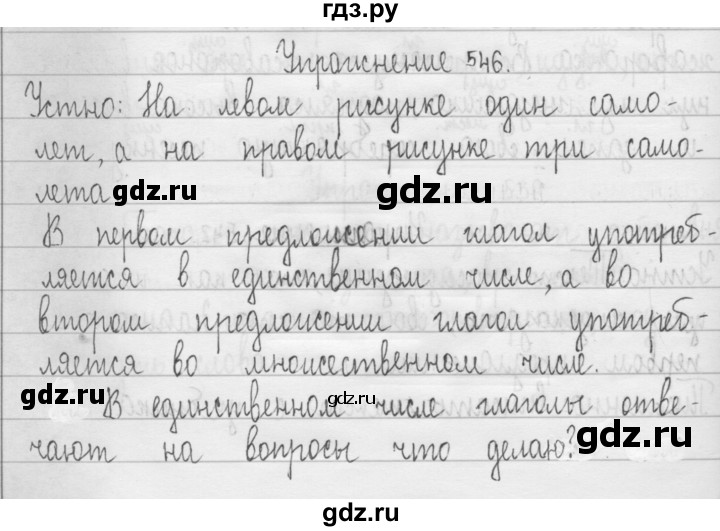 гдз.ру
Упражнение 546.
Устно: На левом рисунке один само-
лет, а на правом рисунке три само-
лета
gdz.ru
gdz.ru
В первом предложении глагол употреб-
ляется в единственном числе, а во
втором предложении глагол употреб-
ляется во множественном числе.
gdz.ru
gdz.ru
gdz.ru
В единственном числе глаголы отве-
чают на вопросы что делаю?